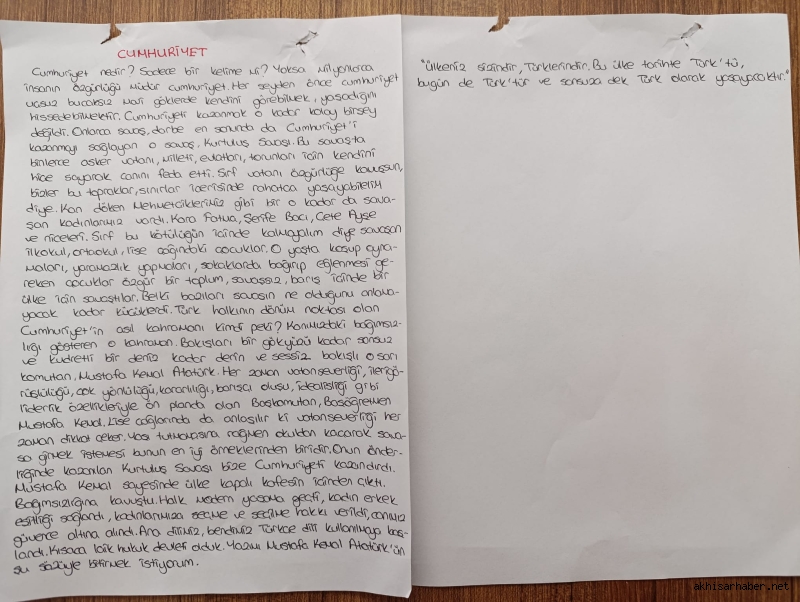 CUMHURİYET
Cumhuriyet nedir? Sadece bir kelime mi? Yoksa milyonlarca
insanın özgürlüğü müdür cumhuriyet. Her şeyden önce cumhuriyet
uçsuz bucaksız mavi göklerde kendini görebilmek, yaşadığını
hissedebilmektir. Cumhuriyeti kazanmak o kadar kolay birşey
değildi. Onlarca savaş, darbe en sonunda da Cumhuriyet'i
kazanmayı sağlayan o savaş, Kurtuluş Savaşı. Bu savaşta
binlerce asker vatanı, milleti, evlatları, torunları için kendini
hiçe sayarak canını feda etti. Sırf vatanı özgürlüğe kavuşsun,
bizler bu topraklar, sınırlar içerisinde rahatça yaşayabilelim
diye. Kan döken Mehmetçiklerimiz gibi bir o kadar da sava-
şan kadınlarımız vardı. Kara Fatma, Şerife Bacı, Çete Ayşe
ve niceleri. Sırf bu kötülüğün içinde kalmayalım diye savaşan
ilkokul, ortaokul, lise çağındaki çocuklar. O yaşta koşup oyna-
maları, yaramazlık yapmaları, sokaklarda bağırıp eğlenmesi ge-
reken çocuklar özgür bir toplum, savaşsız, barış içinde bir
ülke için savaştılar. Belki bazıları savaşın ne olduğunu anlama-
yacak kadar küçüklerdi. Türk halkının dönüm noktası olan
Cumhuriyet'in asıl kahramanı kimdi peki? Kanımızdaki bağımsız-
lığı gösteren o kahraman. Bakışları bir gökyüzü kadar sonsuz
ve kudretli bir deniz kadar derin ve sessiz bakışlı o sarı
komutan, Mustafa Kemal Atatürk. Her zaman vatanseverliği, ileri gö-
rüşlülüğü, çok yönlülüğü, kararlılığı, barışçı oluşu, idealistliği gibi
liderlik özellikleriyle ön planda olan Başkomutan, Başöğretmen
Mustafa Kemal. Lise çağlarında da anlaşılır ki vatanseverliği her
zaman dikkat çeker. Yaşı tutmamasına rağmen okuldan kaçarak sava-
şa girmek istemesi bunun en iyi örneklerinden biridir. Onun önder-
liğinde kazanılan Kurtuluş Savaşı bize Cumhuriyeti kazandırdı.
Mustafa Kemal sayesinde ülke kapalı kafesin içinden çıktı.
Bağımsızlığına kavuştu. Halk modern yaşama geçti, kadın erkek
eşitliği sağlandı, kadınlarımıza seçme ve seçilme hakkı verildi, canımız
güvence altına alındı. Ana dilimiz, bendimiz Türkçe dili kullanılmaya baş-
landı. Kısaca laik hukuk devleti olduk. Yazımı Mustafa Kemal Atatürk'ün
şu sözüyle bitirmek istiyorum.
"Ülkeniz sizindir, Türklerindir. Bu ülke tarihte Türk'tü,
bugün de Türk'tür ve sonsuza dek Türk olarak yaşayacaktır."
akhisarhaber.net